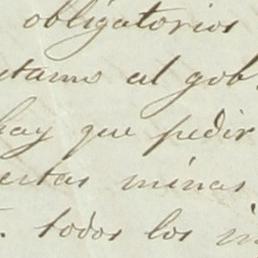 obligatorios
stamo al gob.
hay que pedir
ertas minas
todos los in